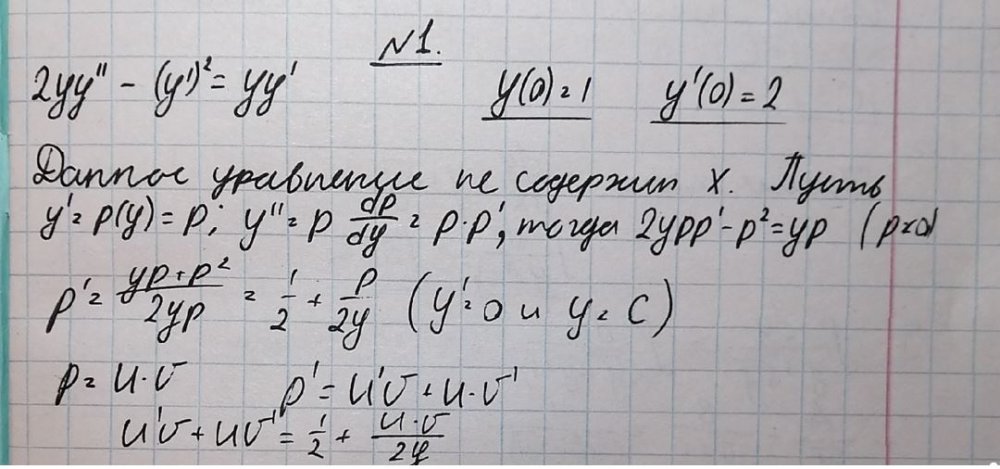 №1.
2yy'' - (y')² = yy' y(0)=1 y'(0)=2
Данное уравнение не содержит x. Пусть
y' = p(y) = p; y'' = p dp/dy = p·p', тогда 2ypp' - p² = yp (p=0)
p' = (yp+p²)/(2yp) = 1/2 + p/(2y) (y'=0 и y=C)
p = u·v p' = u'v + u·v'
u'v + uv' = 1/2 + (u·v)/(2y)